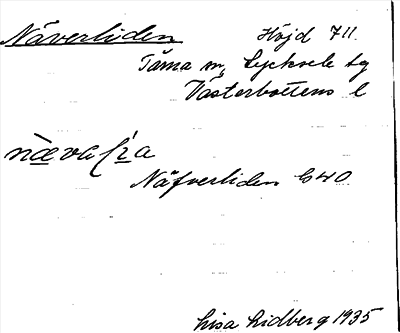 Näverliden Höjd 711.
Tärna sn, Lycksele tg
Västerbottens l
Näfverliden G40
Lisa Lidberg 1935